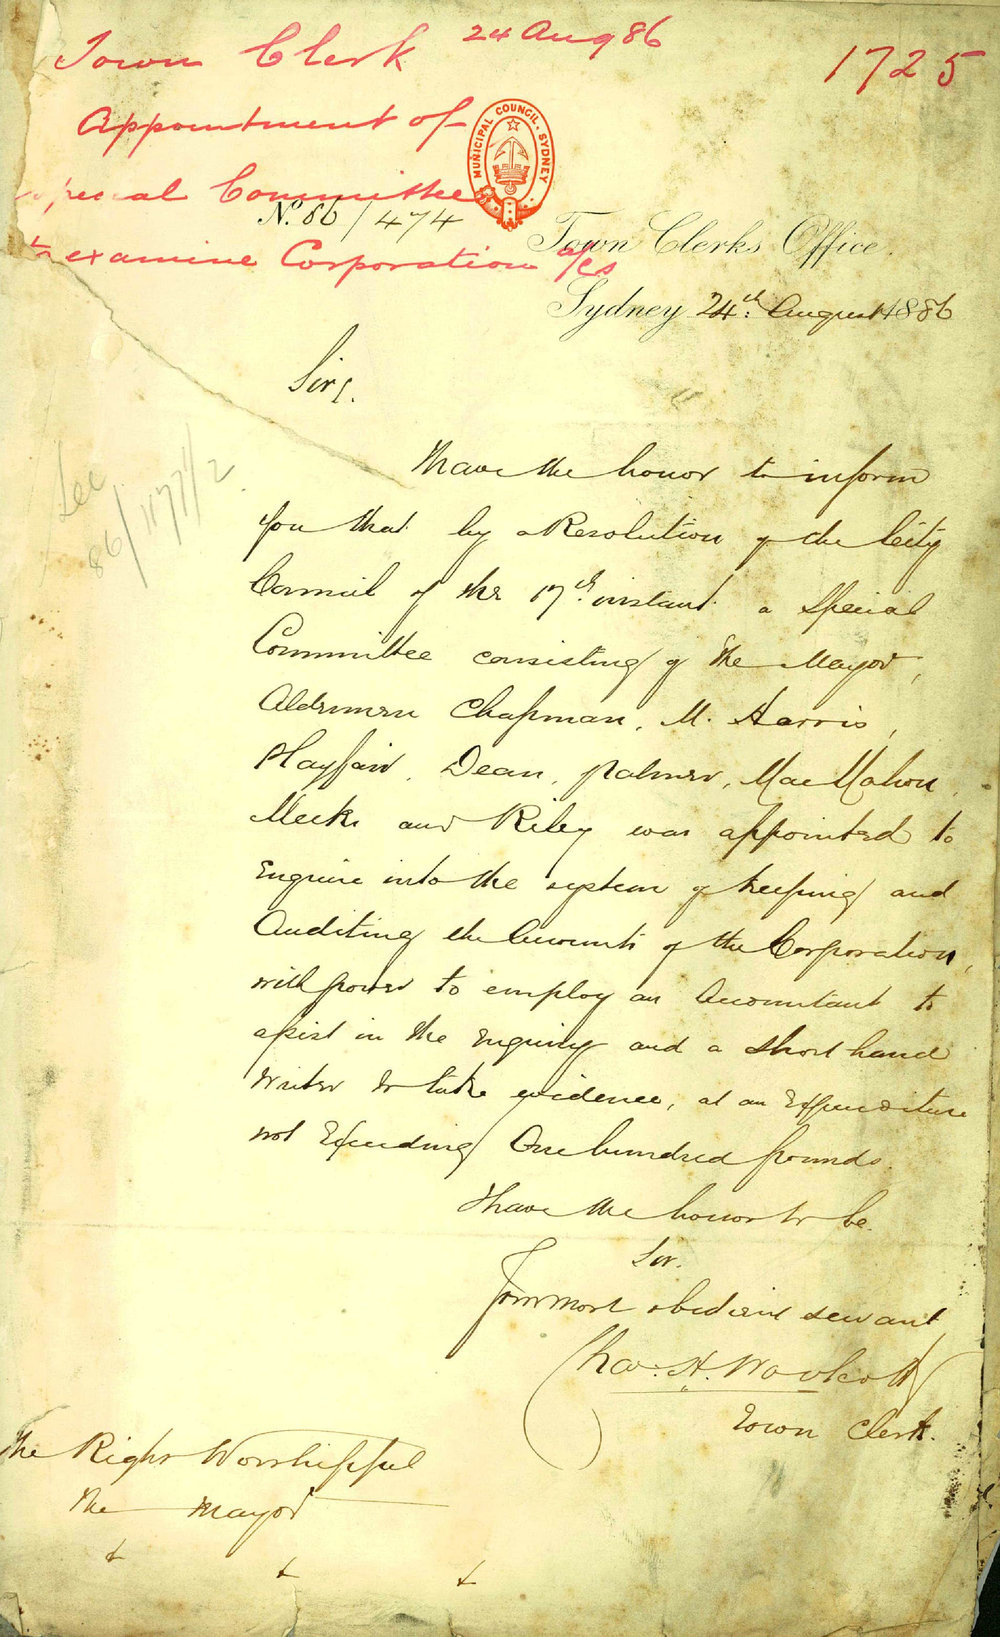 Town Clerk 24 Aug 86
1725
Appointment of
Special Committee
to examine Corporation a/cs
MUNICIPAL COUNCIL. SYDNEY
No. 86/474
Town Clerks Office.
Sydney 24th August 1886
Sir,
I have the honor to inform
you that by a Resolution of the City
Council of the 17th instant a Special
Committee consisting of the Mayor,
Aldermen Chapman, M. Harris,
Playfair, Dean, Palmer, MacMahon,
Meeks and Riley was appointed to
Enquire into the system of keeping and
Auditing the Accounts of the Corporation,
with power to employ an Accountant to
assist in the Enquiry and a Short hand
writer to take evidence, at an Expenditure
not Exceeding One hundred pounds.
I have the honor to be.
Sir.
Your most obedient servant
Chas. H. Woolcott
Town Clerk.
The Right Worshipful
The Mayor
See
86/1177/2